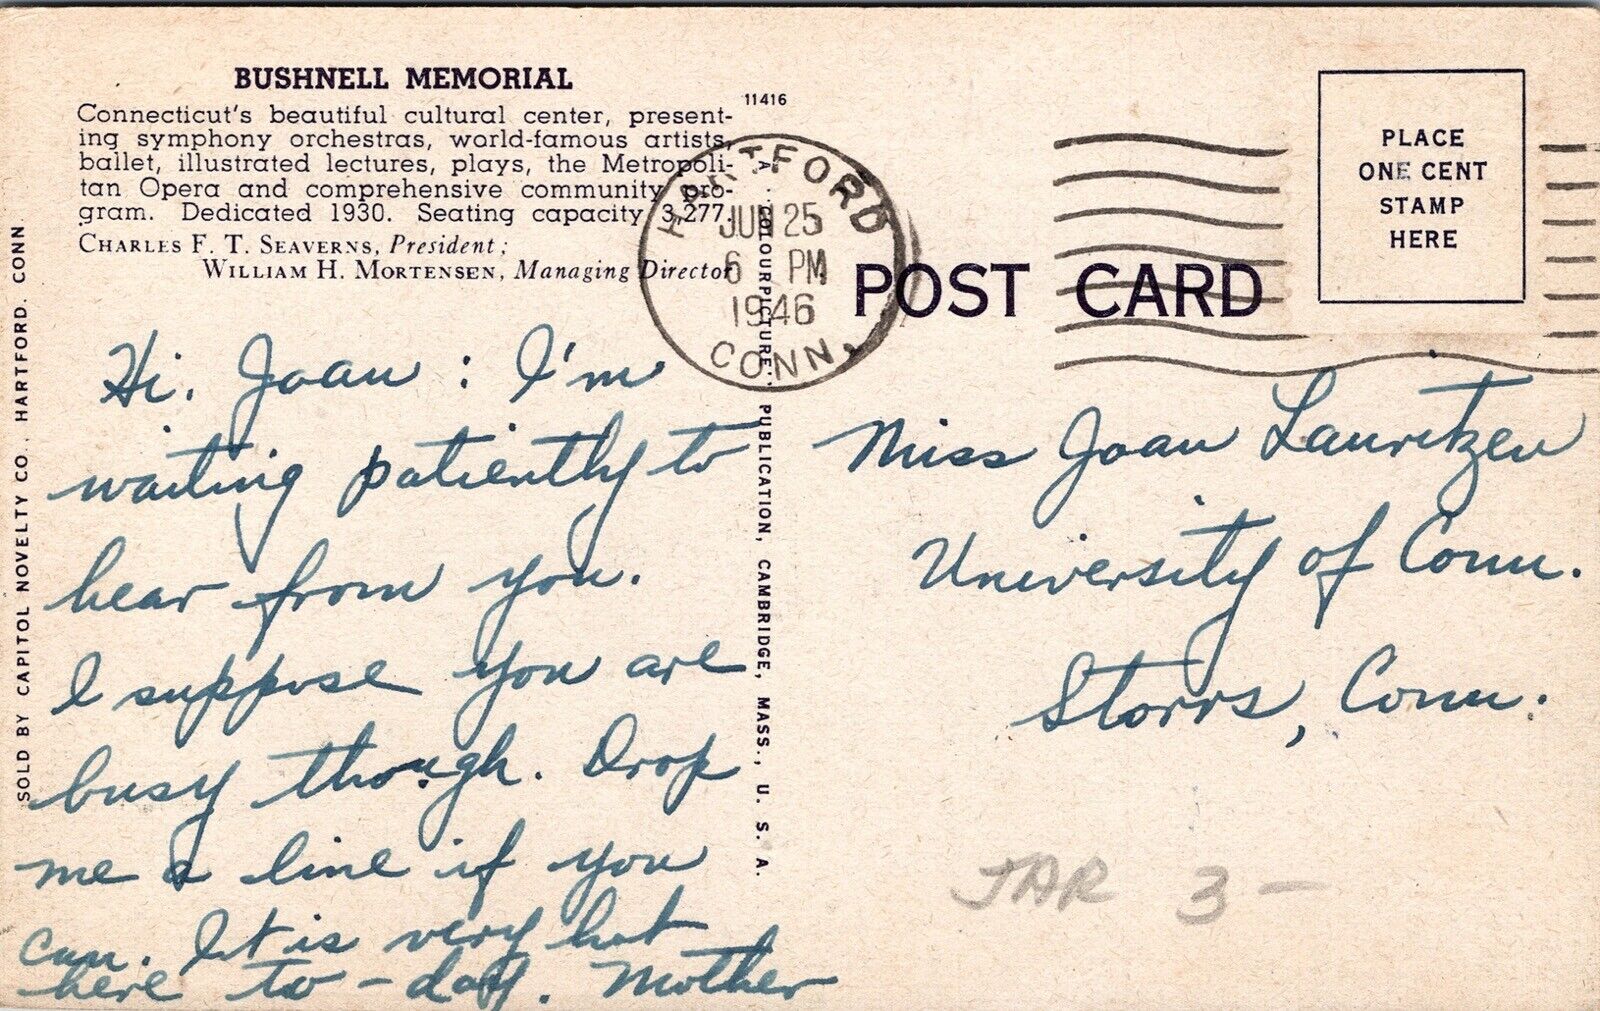 BUSHNELL MEMORIAL
Connecticut's beautiful cultural center, present-
ing symphony orchestras, world-famous artists,
ballet, illustrated lectures, plays, the Metropoli-
tan Opera and comprehensive community pro-
gram. Dedicated 1930. Seating capacity 3,277.
CHARLES F. T. SEAVERNS, President;
WILLIAM H. MORTENSEN, Managing Director
11416
HARTFORD
JUN 25
6 PM
1946
CONN.
POST CARD
PLACE
ONE CENT
STAMP
HERE
SOLD BY CAPITOL NOVELTY CO., HARTFORD, CONN
A "COLOURPICTURE" PUBLICATION, CAMBRIDGE, MASS., U. S. A.
Hi, Joan: I'm
waiting patiently to
hear from you.
I suppose you are
busy though. Drop
me a line if you
can. It is very hot
here to-day. Mother
Miss Joan Lauritzen
University of Conn.
Storrs, Conn.
JAR 3-